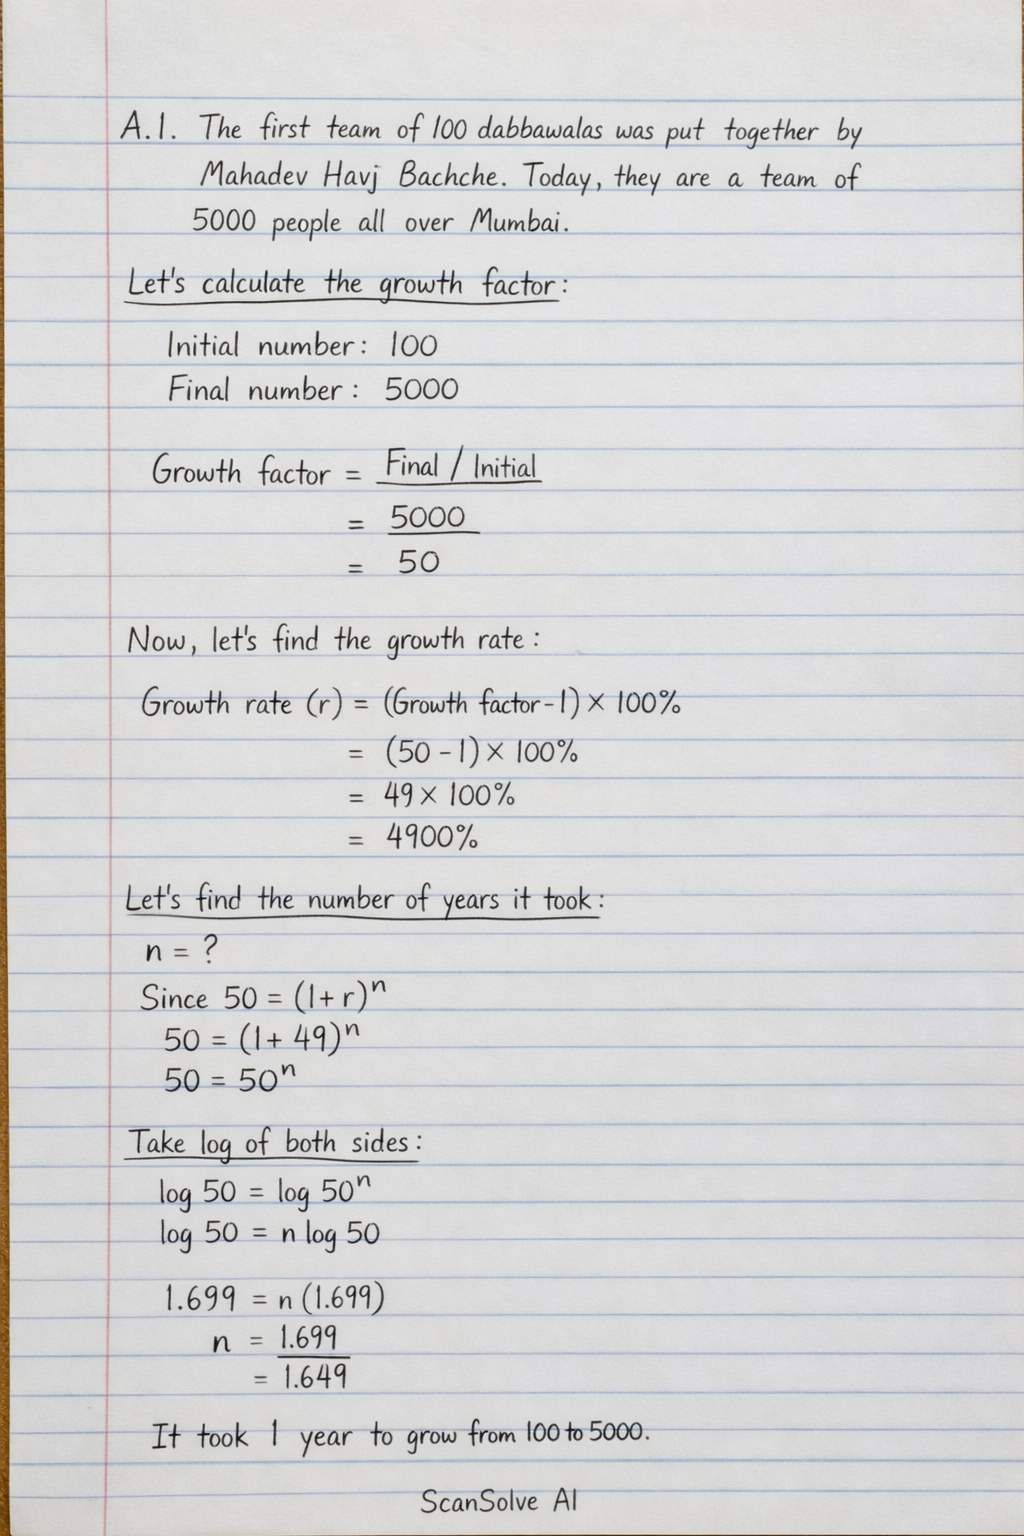 A.1. The first team of 100 dabbawalas was put together by
Mahadev Havj Bachche. Today, they are a team of
5000 people all over Mumbai.
Let's calculate the growth factor:
Initial number: 100
Final number: 5000
Growth factor = Final / Initial
= 5000
= 50
Now, let's find the growth rate:
Growth rate (r) = (Growth factor-1) × 100%
= (50 - 1) × 100%
= 49 × 100%
= 4900%
Let's find the number of years it took:
n = ?
Since 50 = (1+ r)ⁿ
50 = (1+ 49)ⁿ
50 = 50ⁿ
Take log of both sides:
log 50 = log 50ⁿ
log 50 = n log 50
1.699 = n (1.699)
n = 1.699
= 1.649
It took 1 year to grow from 100 to 5000.
ScanSolve AI